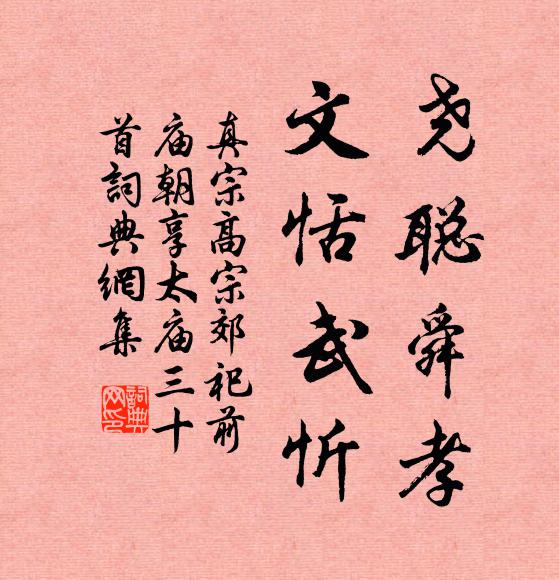 尧聪舜孝
文恬武忻
真宗高宗郊祀前
庙朝享太庙三十
首詞典網集
詞典
网印